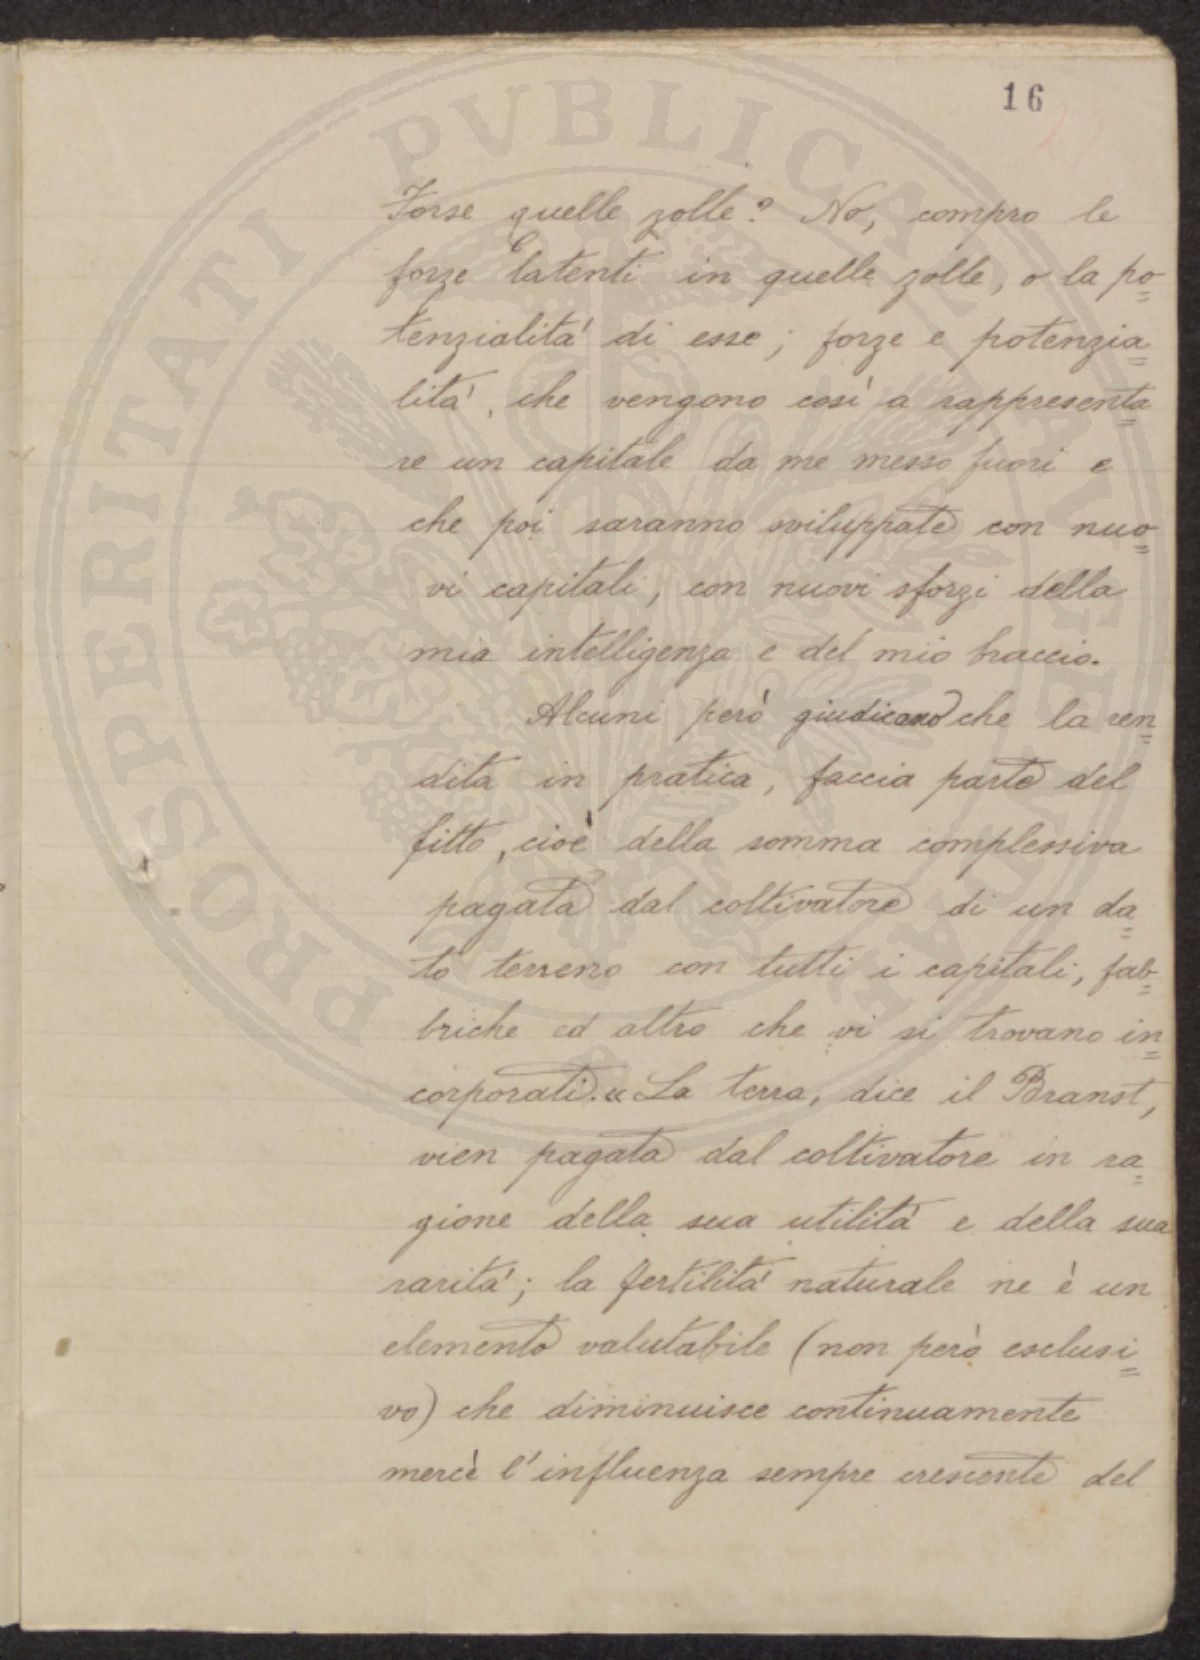 16
Forse quelle zolle? No, compro le
forze latenti in quelle zolle, o la po=
tenzialità di esse; forze e potenzia=
lità, che vengono così a rappresenta=
re un capitale da me messo fuori e
che poi saranno sviluppate con nuo=
vi capitali, con nuovi sforzi della
mia intelligenza e del mio braccio.
Alcuni però giudicano che la ren=
dita in pratica, faccia parte del
fitto, cioè della somma complessiva
pagata dal coltivatore di un da=
to terreno con tutti i capitali, fab=
briche ed altro che vi si trovano in=
corporati. « La terra, dice il Branst,
vien pagata dal coltivatore in ra=
gione della sua utilità e della sua
rarità; la fertilità naturale ne è un
elemento valutabile (non però esclusi=
vo) che diminuisce continuamente
mercè l'influenza sempre crescente del
PROSPERITATI PVBLICAE